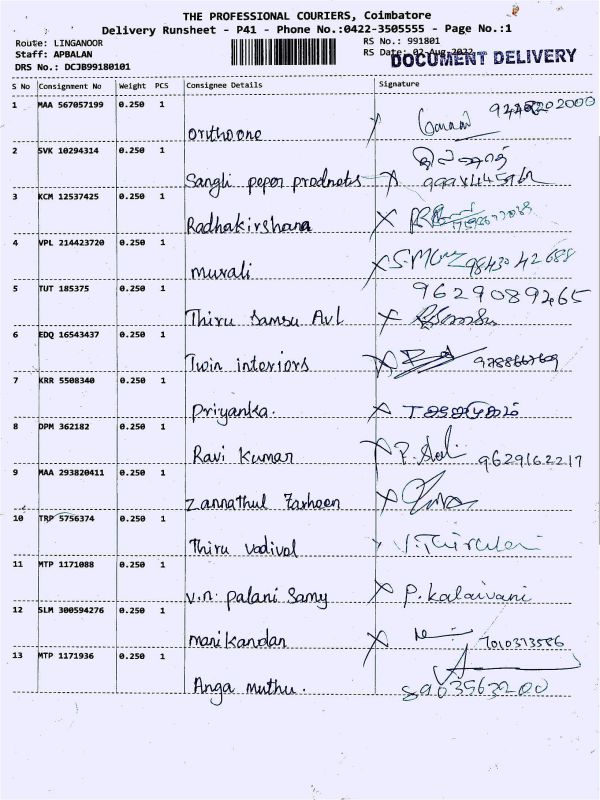 THE PROFESSIONAL COURIERS, Coimbatore
Delivery Runsheet - P41 - Phone No.:0422-3505555 - Page No.:1
Route: LINGANOOR
RS No.: 991801
Staff: APBALAN
RS Date: 02-Aug-2022
DOCUMENT DELIVERY
DRS No.: DCJB99180101
S No Consignment No Weight PCS Consignee Details Signature
1 MAA 567057199 0.250 1
orithoone
2 SVK 10294314 0.250 1
Sangli peper prodnets X
3 KCM 12537425 0.250 1
Radhakirshana X
4 VPL 214423720 0.250 1
murali X S.M 9843042688
5 TUT 185375 0.250 1 9629089265
Thiru Samsu Avl X
6 EDQ 16543437 0.250 1
Twin interiors X
7 KRR 5508340 0.250 1
Priyanka. X
8 DPM 362182 0.250 1
Ravi Kumar X 9629162217
9 MAA 293820411 0.250 1
Zannathul Farheen X
10 TRP 5756374 0.250 1
Thiru vadivel
11 MTP 1171088 0.250 1
v.n. palani Samy X P. kalaivani
12 SLM 300594276 0.250 1
manikandan X 7010373586
13 MTP 1171936 0.250 1
Anga muthu. 8903563200